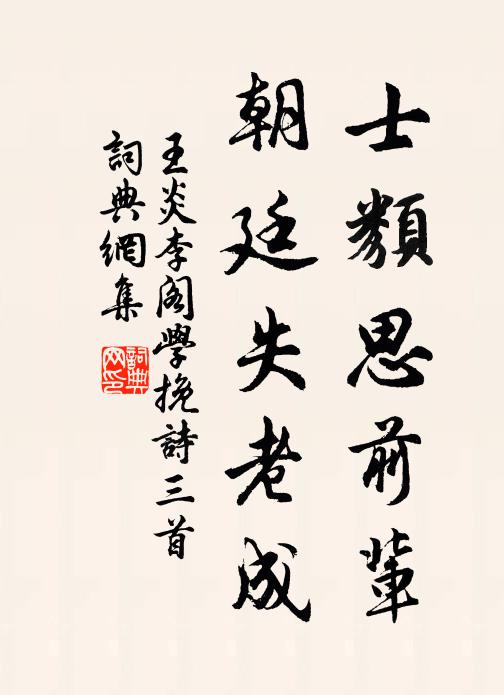 士類思前輩
朝廷失老成
王炎李閣學挽詩三首
詞典網集
詞典網印